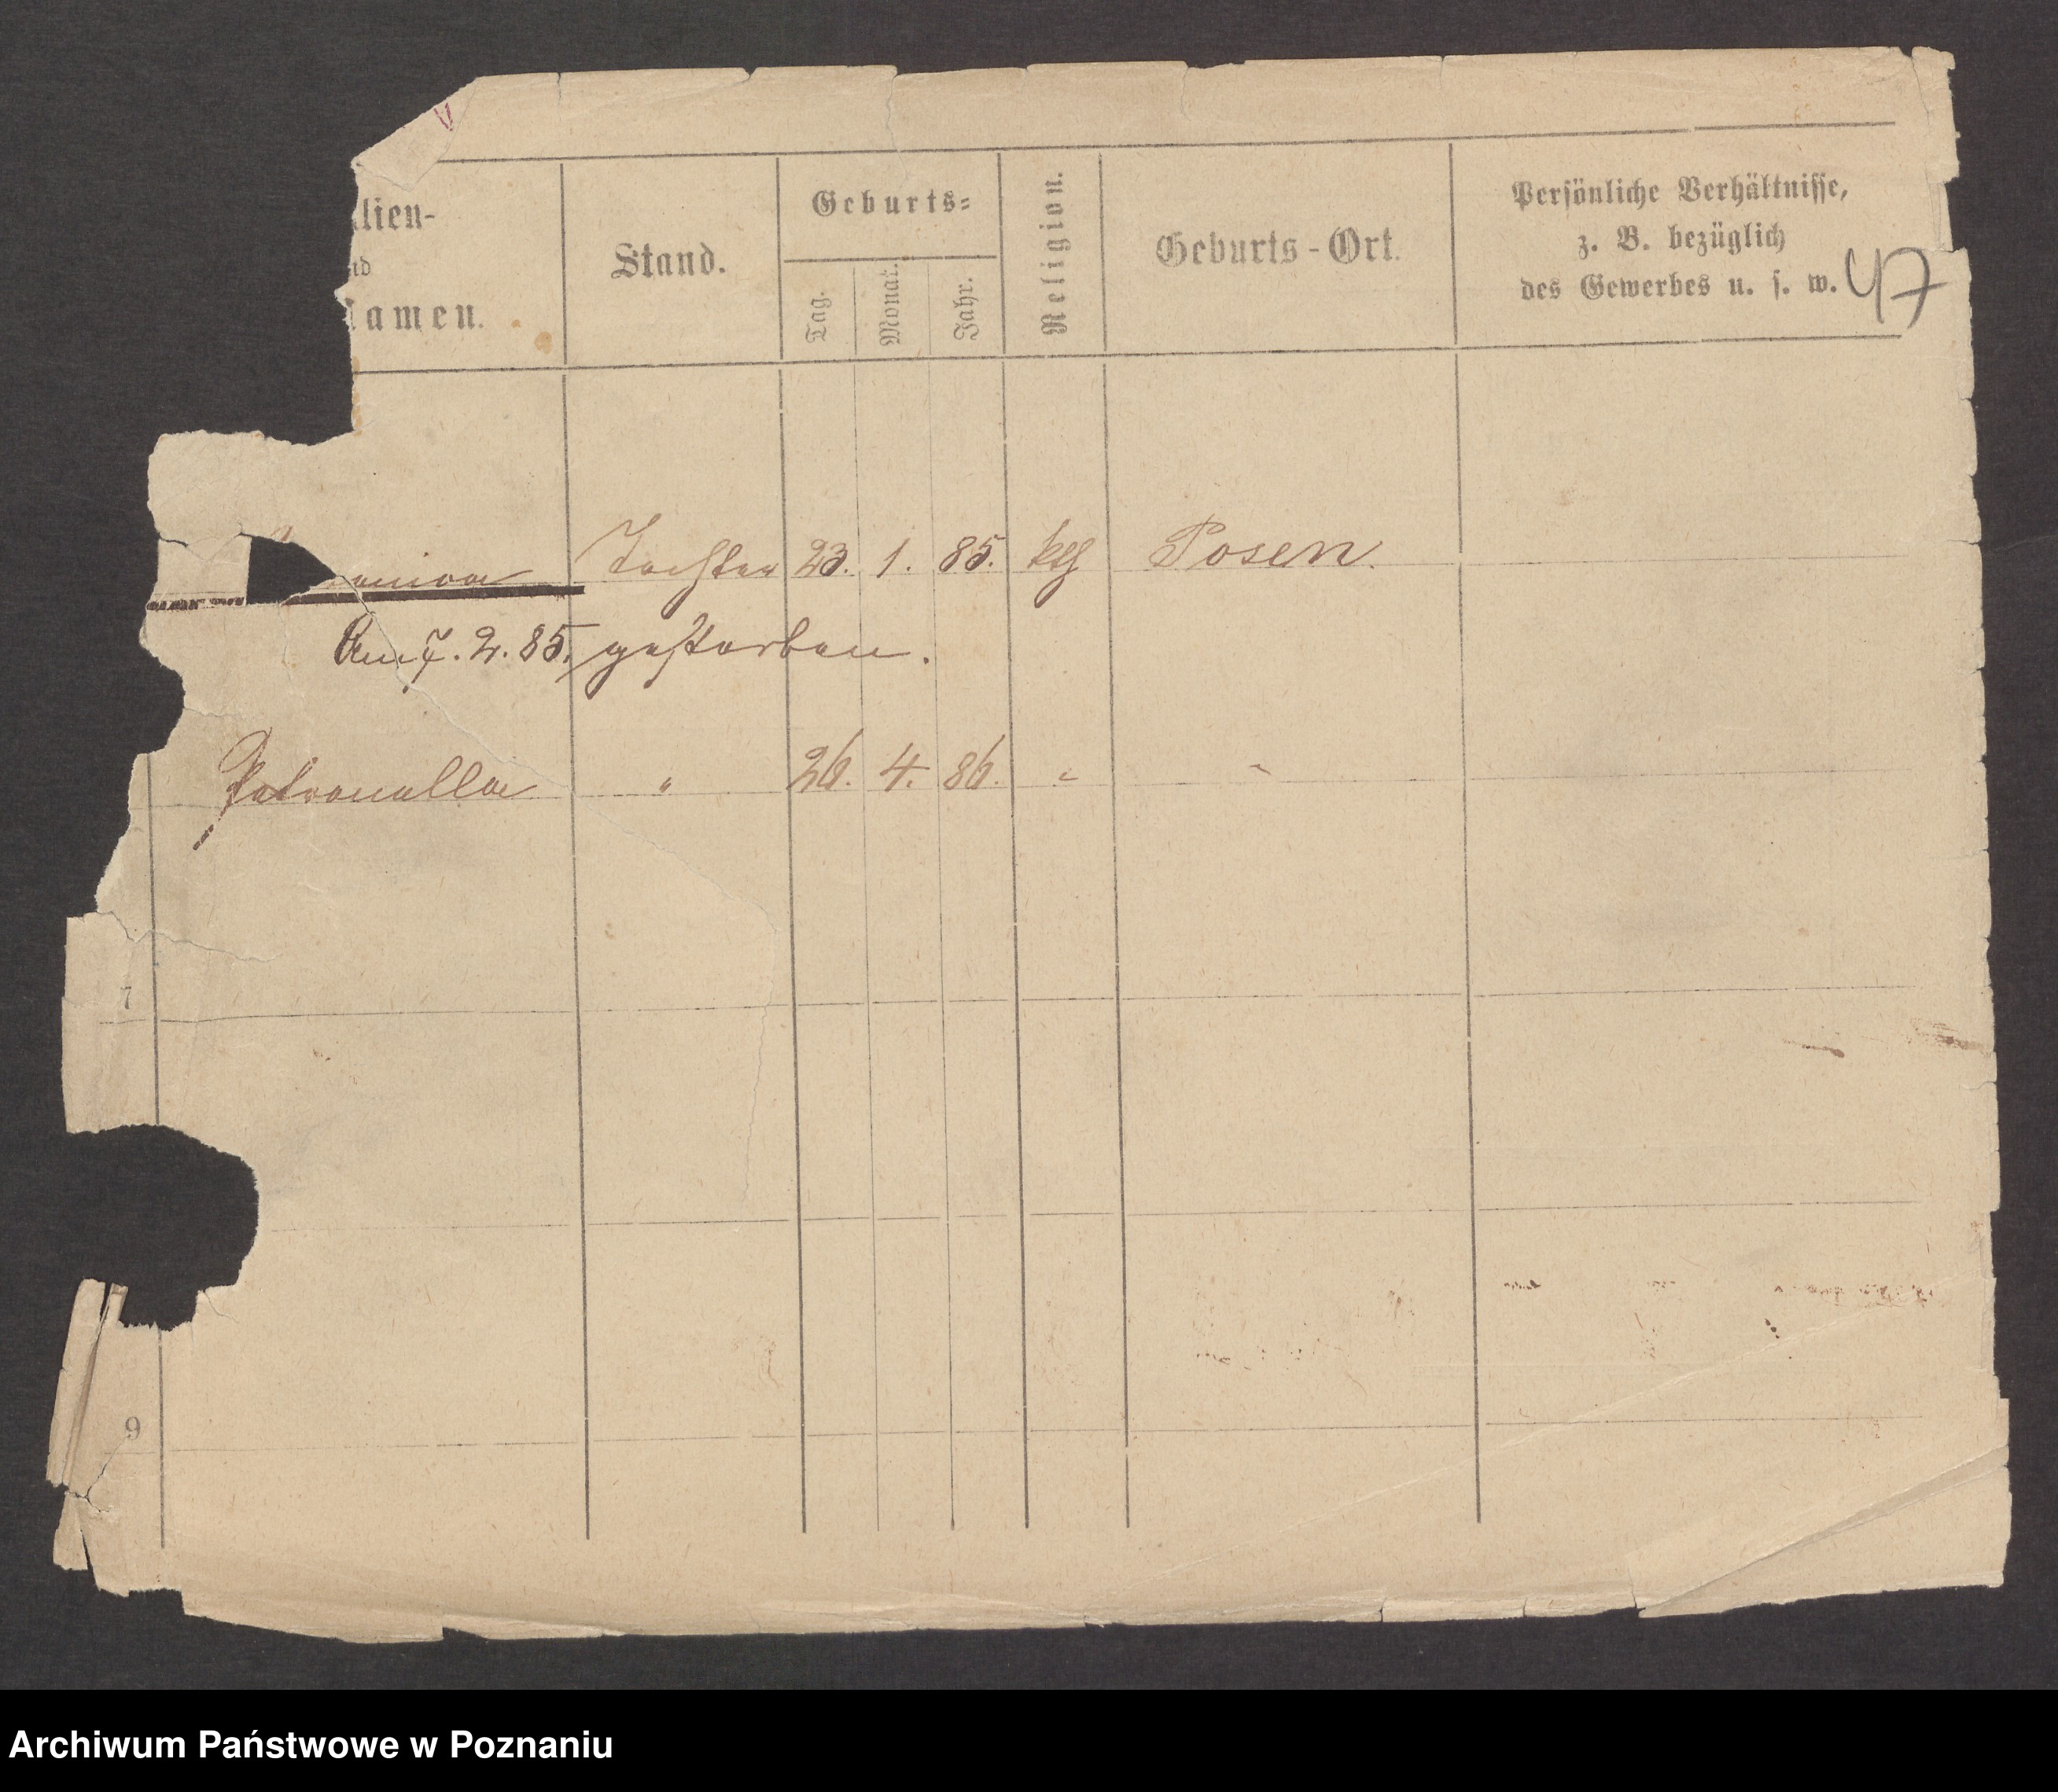 lien-
nd
Namen.
Stand.
Geburts-
Tag.
Monat.
Jahr.
Religion.
Geburts-Ort.
Persönliche Verhältnisse,
z. B. bezüglich
des Gewerbes u. s. w.
47
Tochter 23. 1. 85. kth Posen.
Am 7. 2. 85. gestorben.
Petronella " 26. 4. 86. " "
7
9
Archiwum Państwowe w Poznaniu